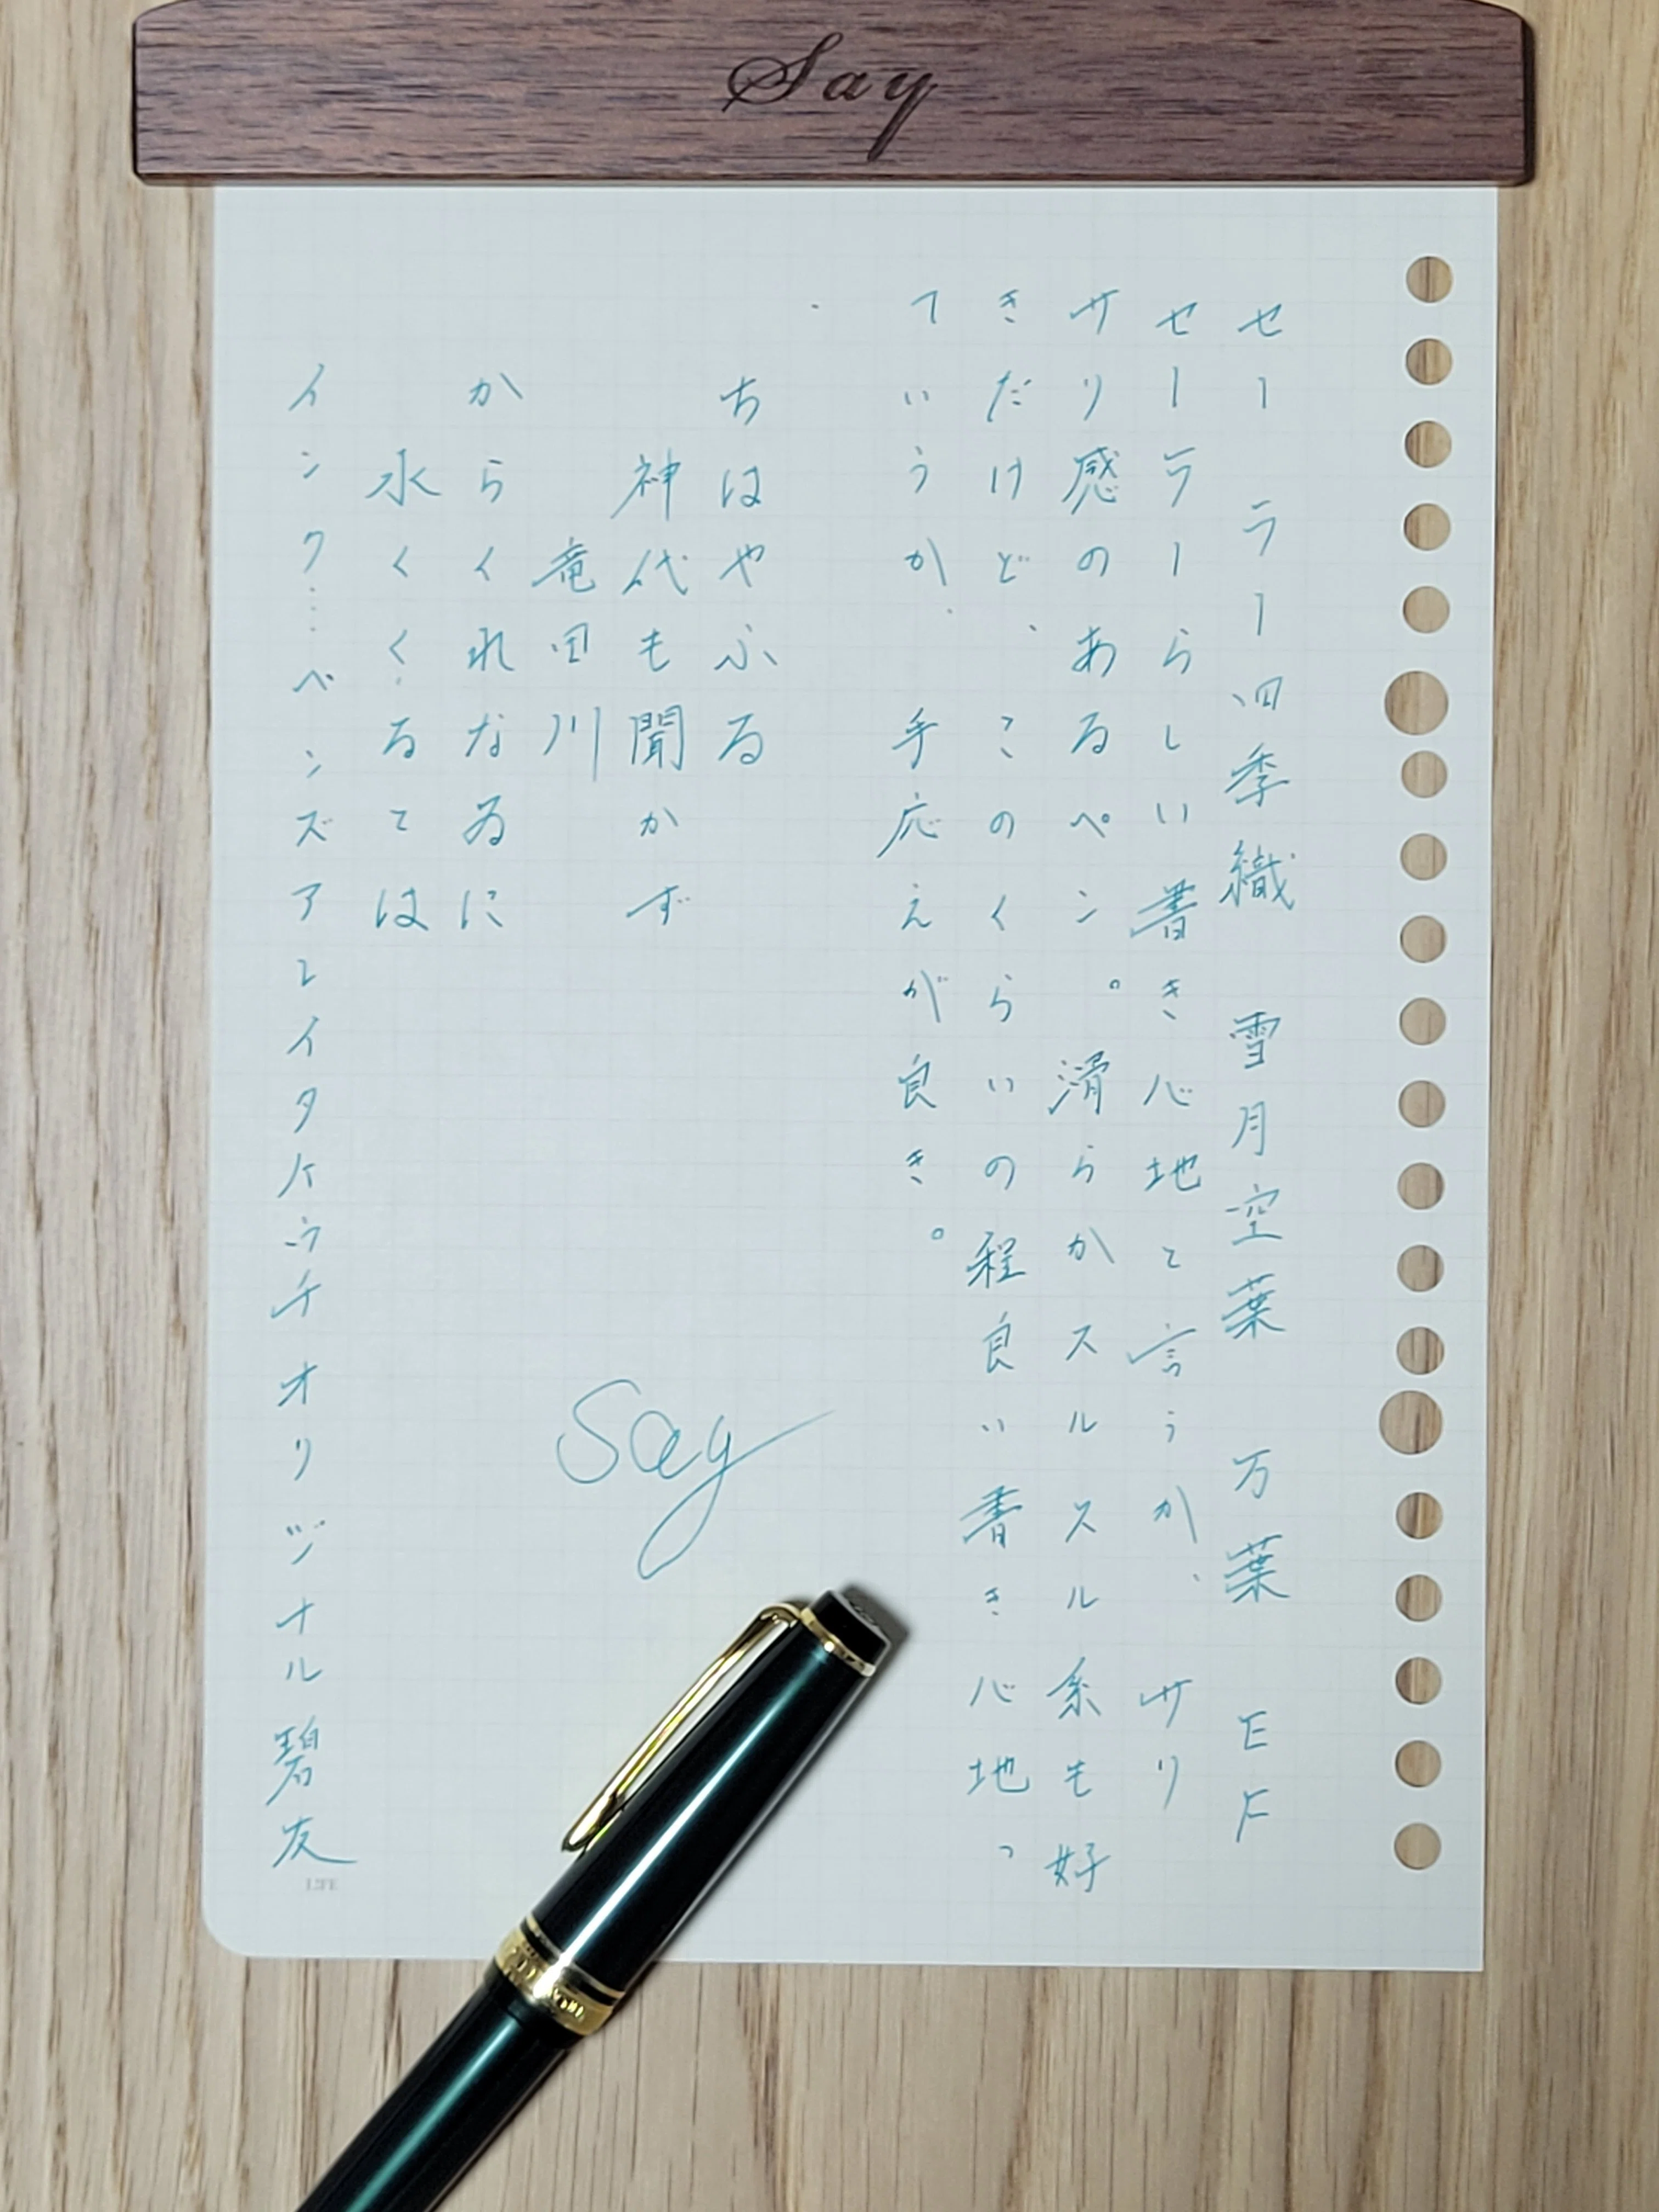 Say
セーラー四季織 雪月空葉 万葉 EF
セーラーらしい書き心地と言うか、サリ
サリ感のあるペン。滑らかスルスル系も好
きだけど、このくらいの程良い書き心地っ
ていうか、手応えが良き。
ちはやふる
神代も聞かず
竜田川
からくれなゐに
水くくるとは
インク…ペンズアレイタケウチオリジナル碧友
Say
LIFE